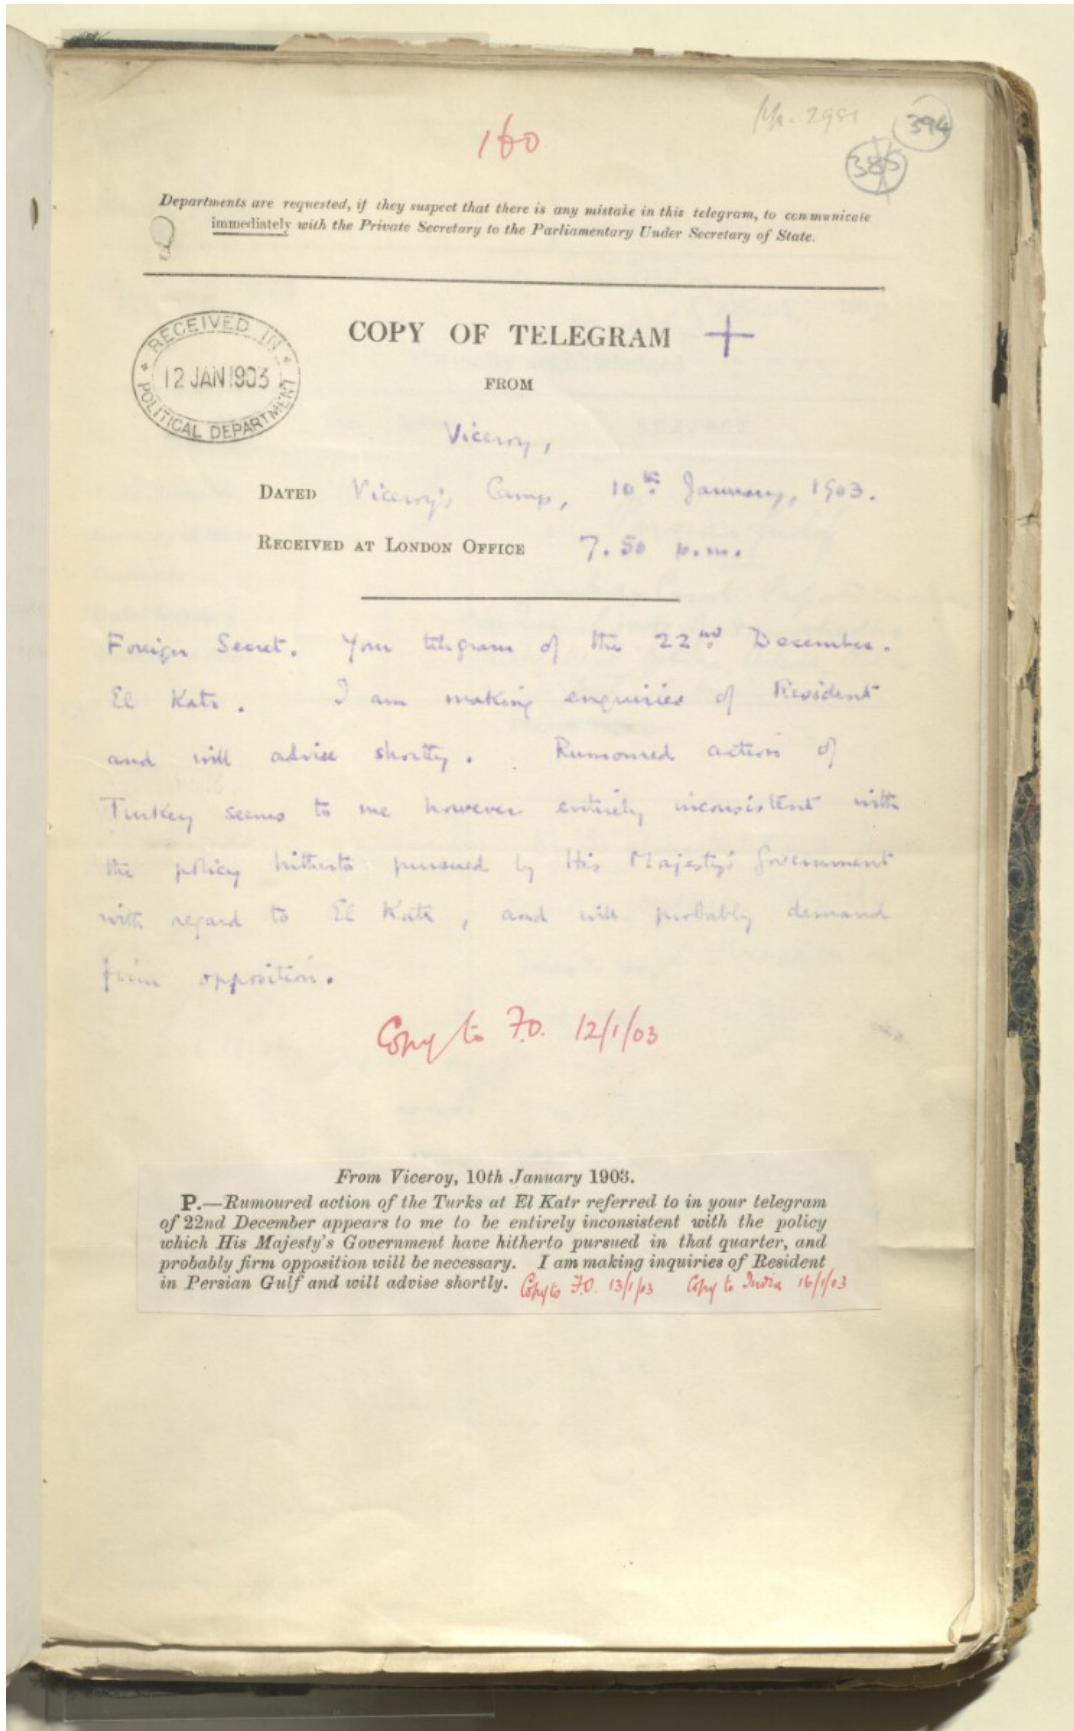 160
394
385
Departments are requested, if they suspect that there is any mistake in this telegram, to communicate
immediately with the Private Secretary to the Parliamentary Under Secretary of State.
RECEIVED IN
12 JAN 1903
POLITICAL DEPARTMENT
COPY OF TELEGRAM +
FROM
Viceroy,
DATED Viceroy's Camp, 10th January, 1903.
RECEIVED AT LONDON OFFICE 7.50 p.m.
Foreign Secret. Your telegram of the 22nd December.
El Katr. I am making enquiries of Resident
and will advise shortly. Rumoured action of
Turkey seems to me however entirely inconsistent with
the policy hitherto pursued by His Majesty's Government
with regard to El Katr, and will probably demand
firm opposition.
Copy to F.O. 12/1/03
From Viceroy, 10th January 1903.
P.—Rumoured action of the Turks at El Katr referred to in your telegram
of 22nd December appears to me to be entirely inconsistent with the policy
which His Majesty's Government have hitherto pursued in that quarter, and
probably firm opposition will be necessary. I am making inquiries of Resident
in Persian Gulf and will advise shortly. Copy to F.O. 13/1/03 Copy to India 16/1/03